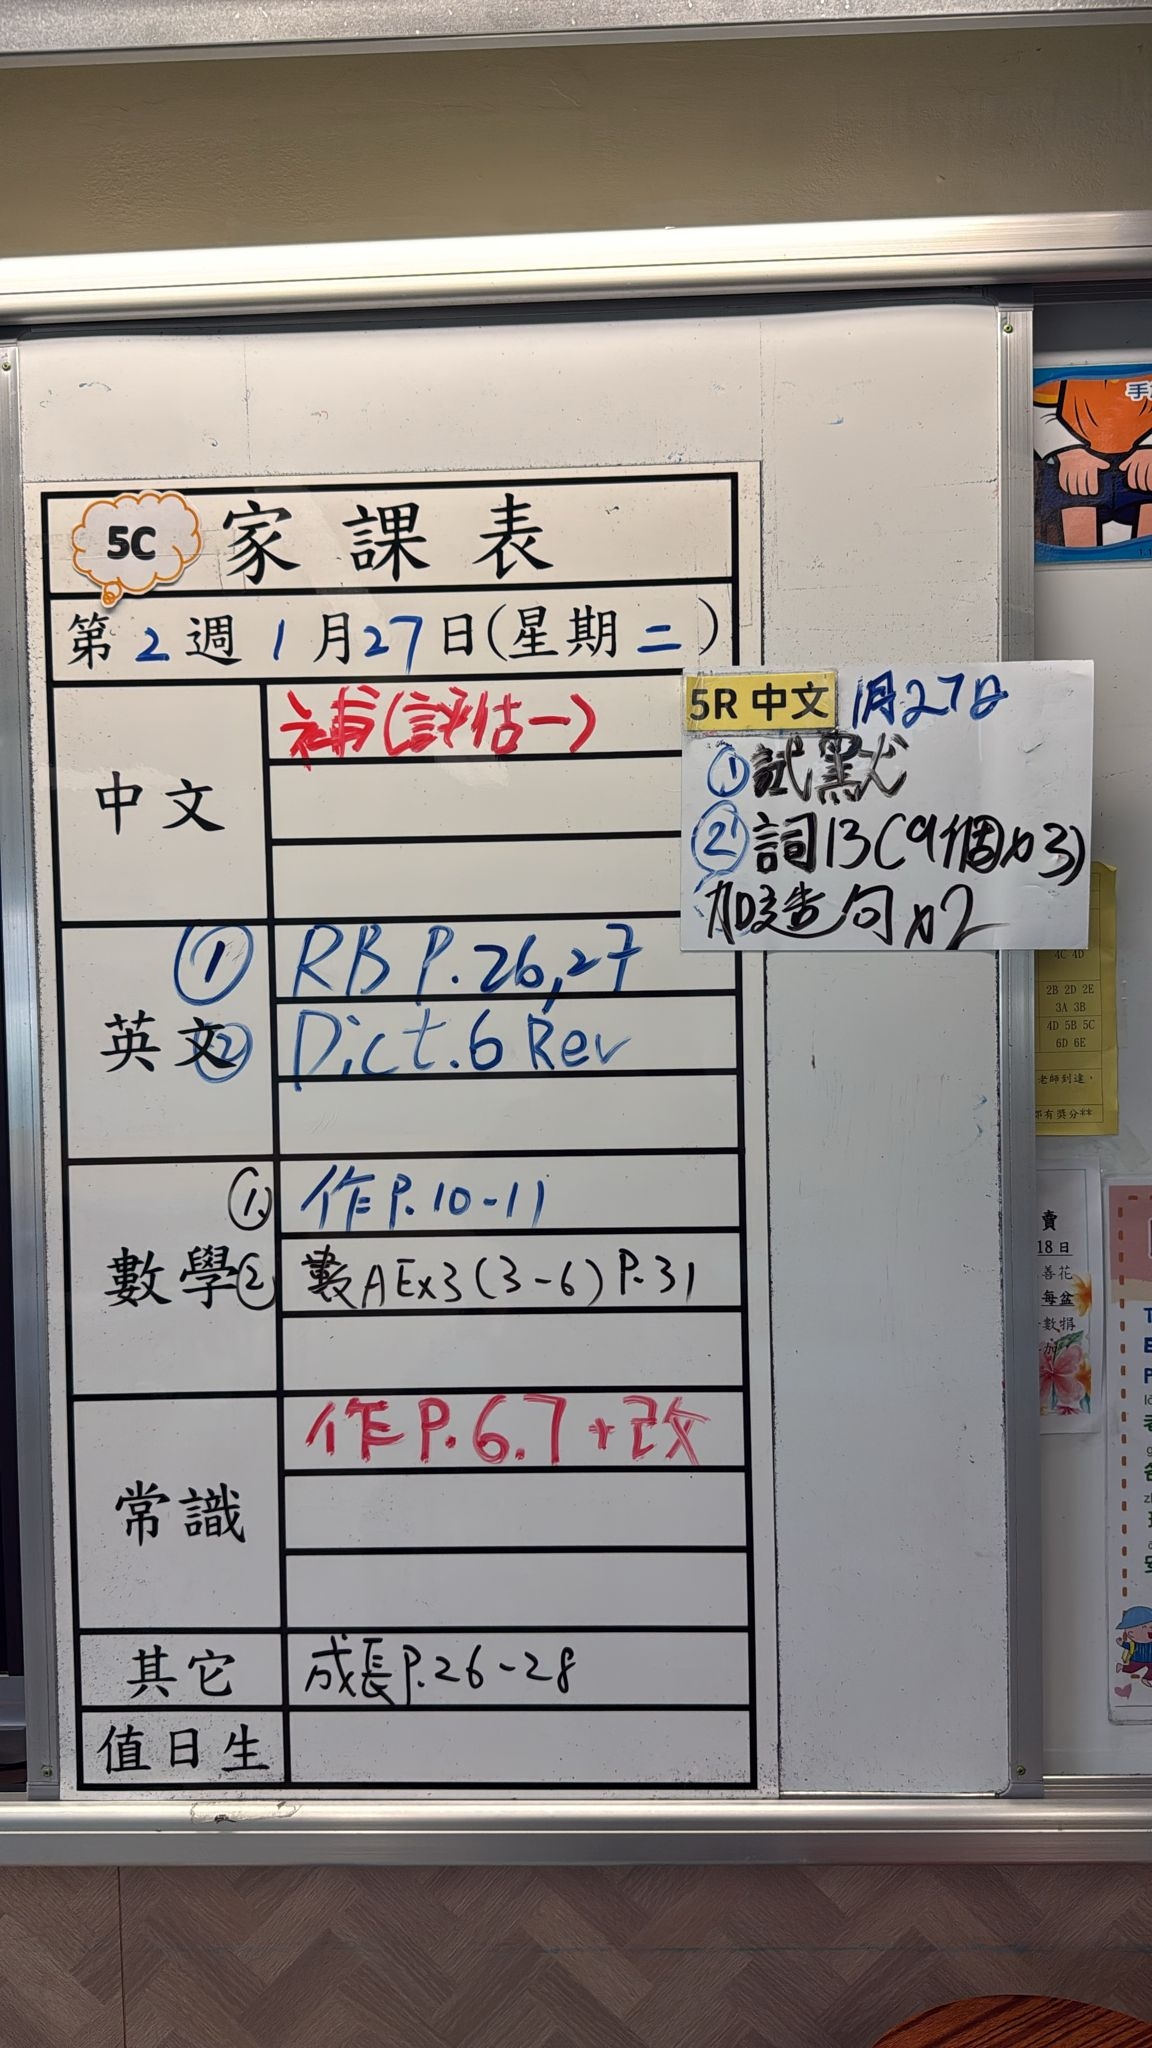 5C 家課表
第2週1月27日(星期二)
中文
補(評估一)
5R 中文 1月27日
①試默
②詞13(9個x3)
加造句x2
英文
① RB P.26,27
② Dict.6 Rev
數學
① 作P.10-11
② 數AEx3(3-6)P.31
常識
作P.6.7+改
其它
成長P.26-28
值日生
4C 4D
2B 2D 2E
3A 3B
4D 5B 5C
6D 6E
老師到達，
有獎分**
賣
18日
善花
每盆
數捐
加